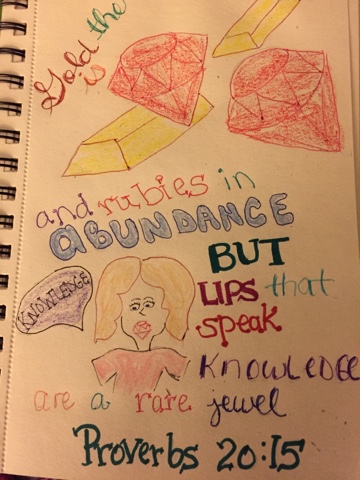 Gold the
is
and rubies in
ABUNDANCE
BUT
LIPS that
speak
KNOWLEDGE
KNOWLEDGE
are a rare jewel
Proverbs 20:15